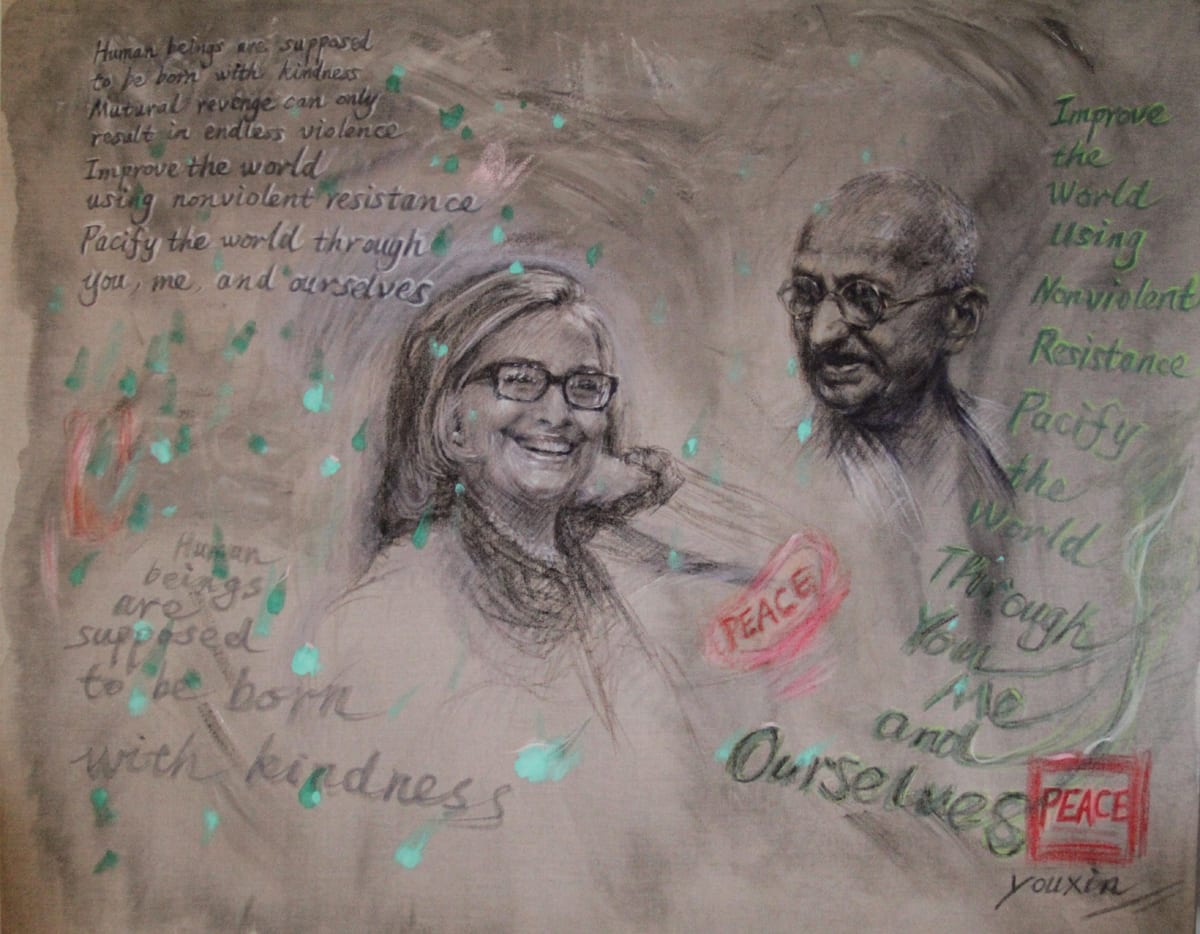 Human beings are supposed
to be born with kindness
Mutural revenge can only
result in endless violence
Improve the world
using nonviolent resistance
Pacify the world through
you, me, and ourselves
Improve
the
World
Using
Nonviolent
Resistance
Pacify
the
World
Through
You
Me
and
Ourselves
PEACE
Human
beings
are
supposed
to be born
with kindness
PEACE
youxin